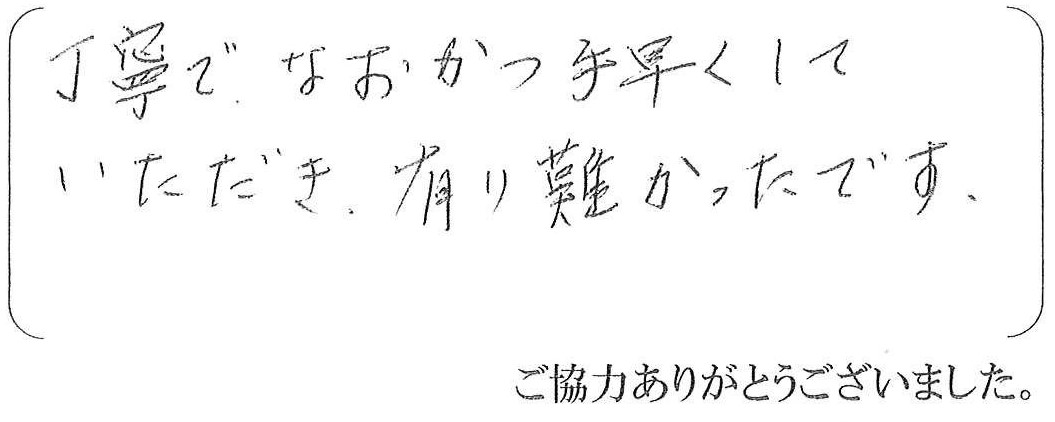 丁寧で、なおかつ手早くして
いただき、有り難かったです、
ご協力ありがとうございました。